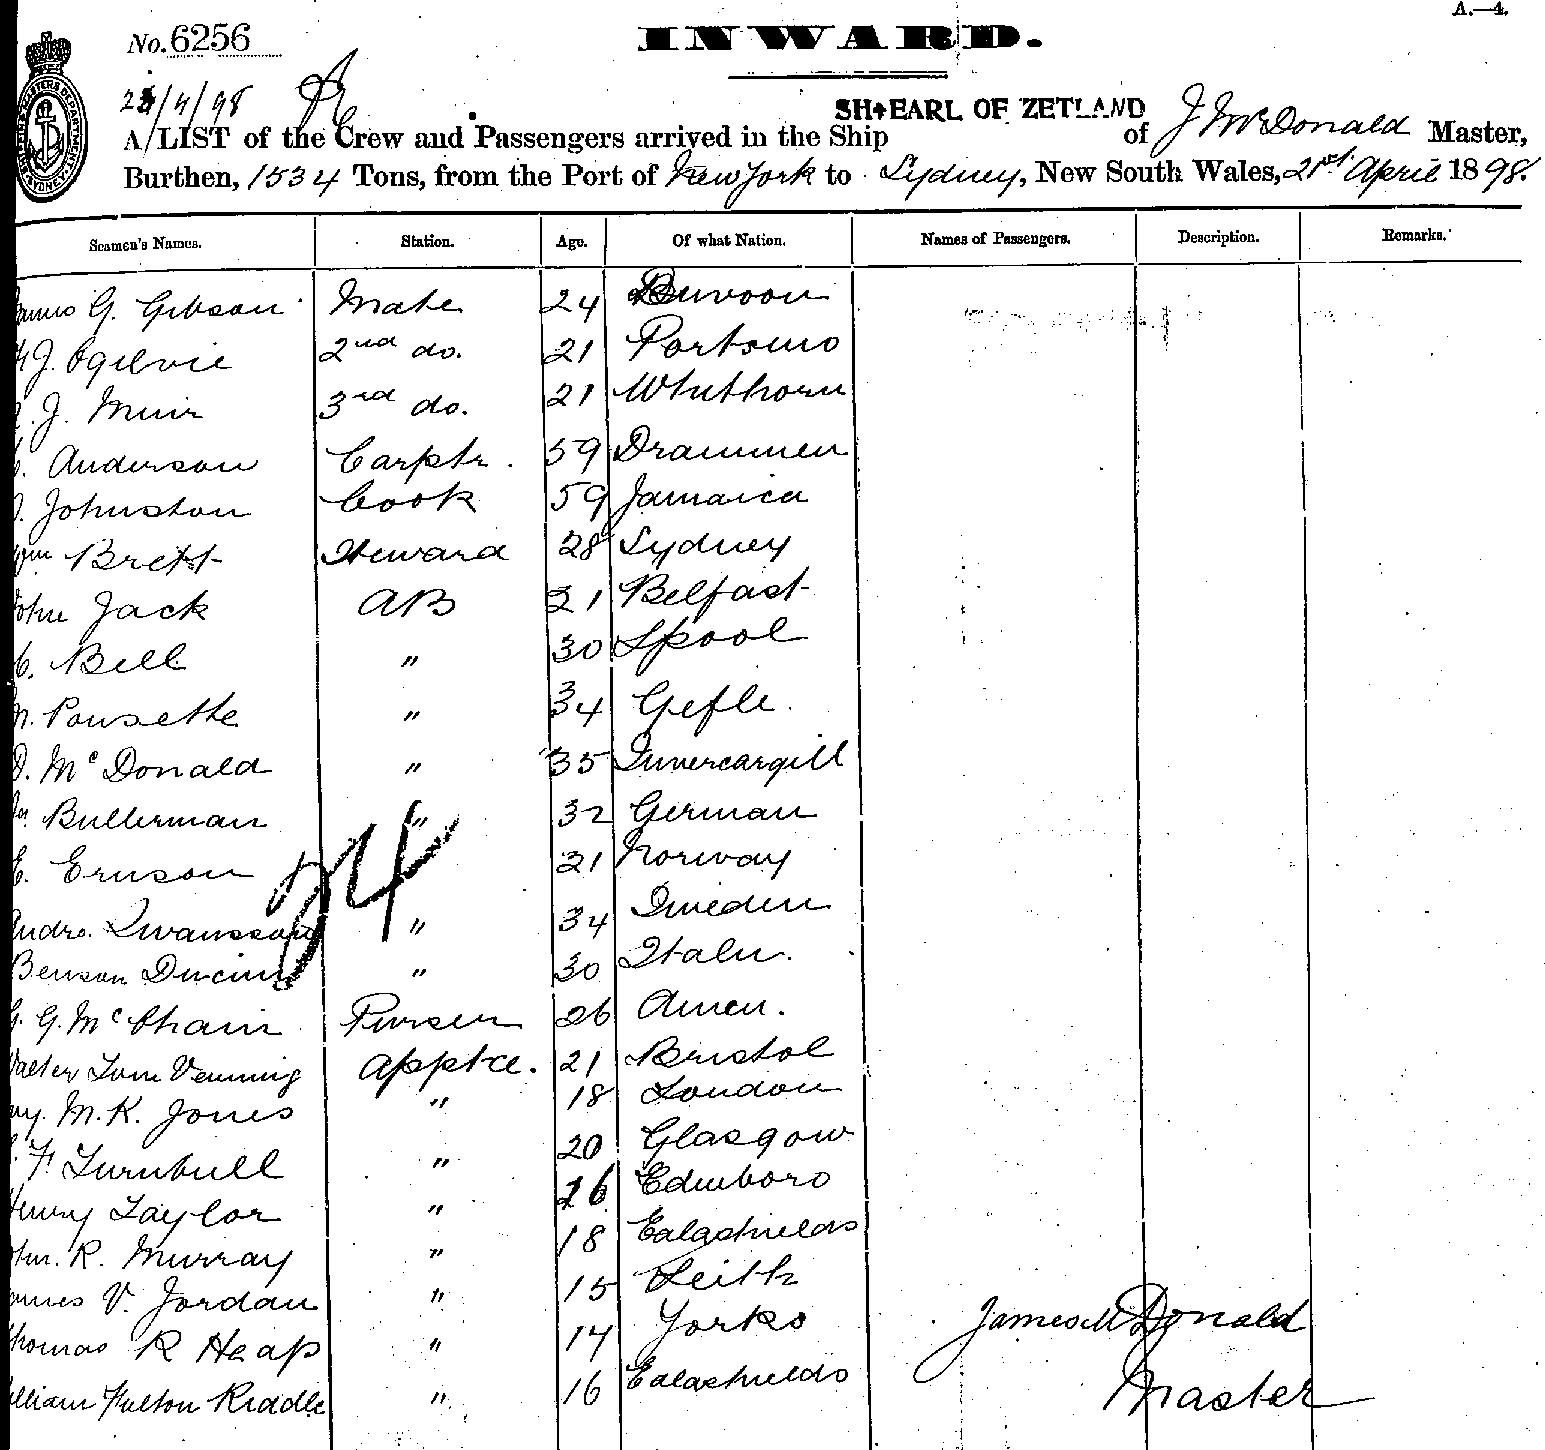 A.—4.
No. 6256
INWARD.
2/4/98
SH EARL OF ZETLAND
A LIST of the Crew and Passengers arrived in the Ship of J McDonald Master,
Burthen, 1534 Tons, from the Port of New York to Sydney, New South Wales, 21st April 1898.
Seamen's Names. Station. Age. Of what Nation. Names of Passengers. Description. Remarks.
G. Gibson Mate 24 Dunoon
J. Ogilvie 2nd do. 21 Portsmo
J. Muir 3rd do. 21 Whithorn
Anderson Carptr. 59 Drammen
Johnston Cook 59 Jamaica
Brett Steward 28 Sydney
John Jack AB 21 Belfast
Bell " 30 Lpool
Pousette " 34 Gefle.
D. McDonald " 35 Invercargill
Bullerman " 32 German
E. Ericson 21 Norway
24
Andrs. Swansson " 34 Sweden
Benson " 30 Italn.
G. G. McChain Purser 26 Amen.
Walter Tom Venning Apptce. 21 Bristol
M. K. Jones " 18 London
F. Turnbull " 20 Glasgow
Henry Taylor " 16 Edinboro
R. Murray " 18 Galashields
James V. Jordan " 15 Leith
Thomas R Heap " 14 Yorks
William Fulton Riddle " 16 Galashields
James McDonald
Master